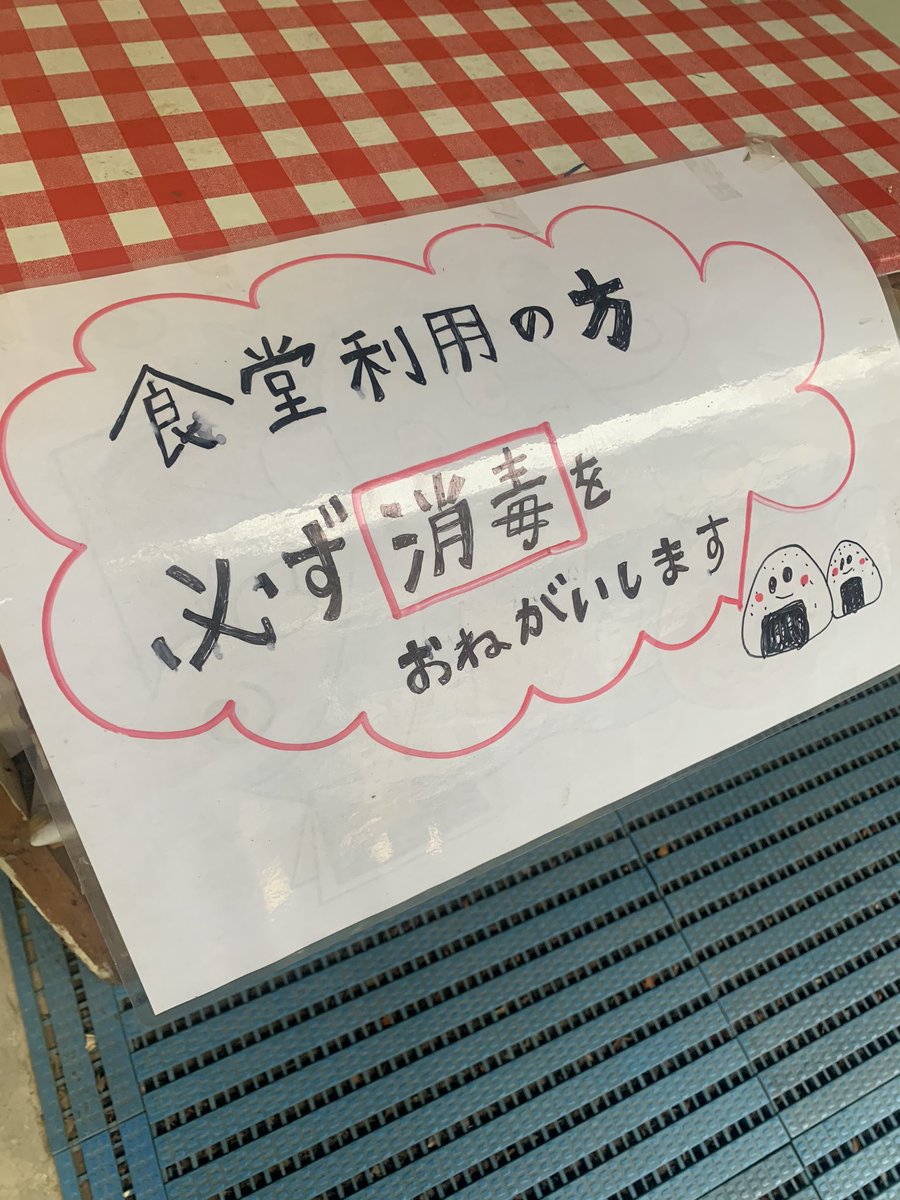 食堂利用の方
必ず消毒を
おねがいします